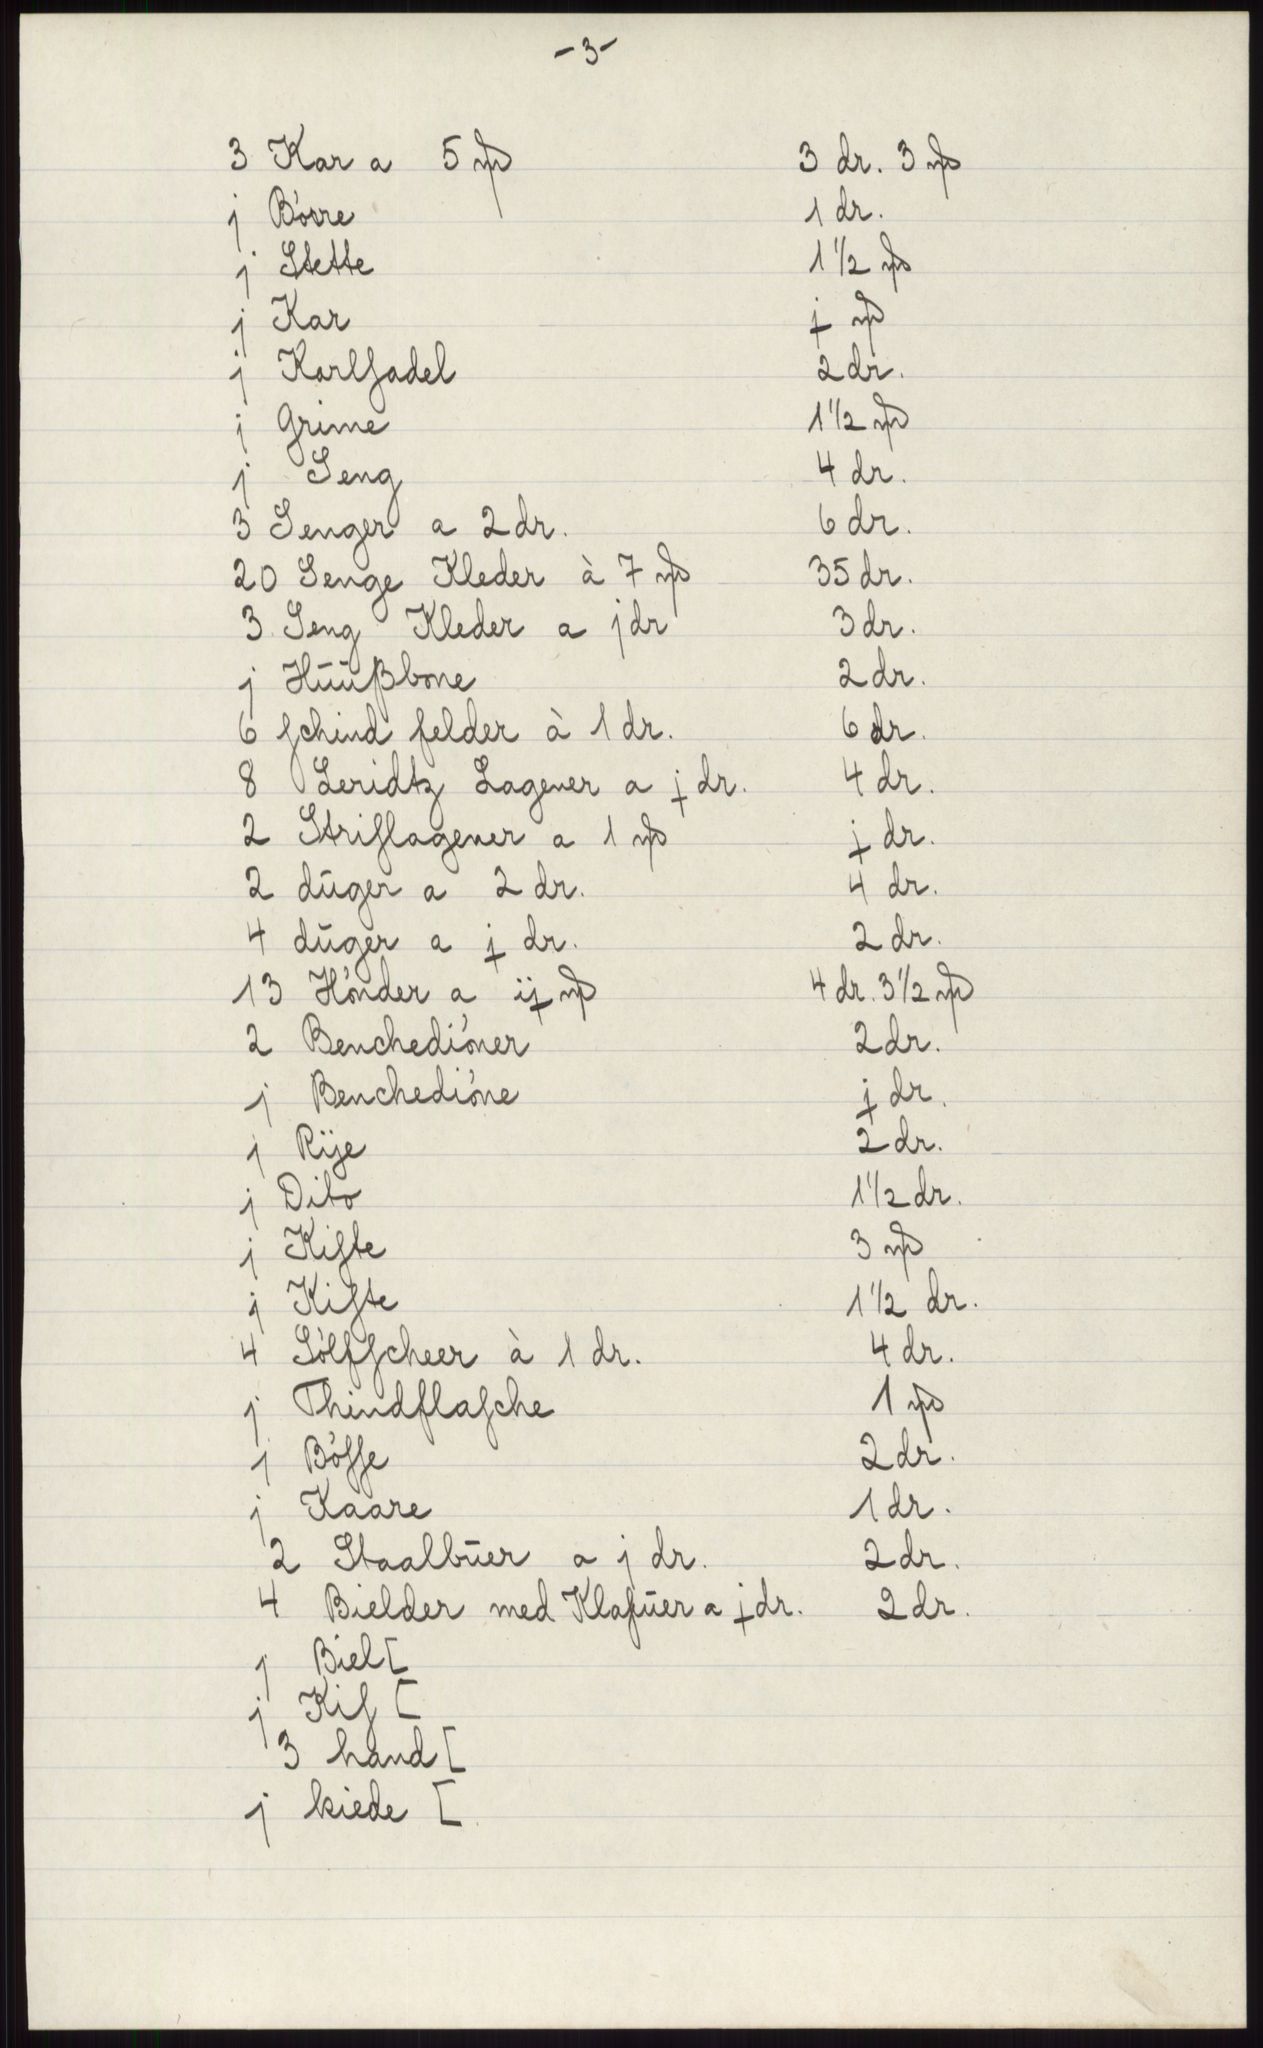 -3-
3 Kar a 5 mꝭ 3 dr. 3 mꝭ
j Börre 1 dr.
j Stette 1 1/2 mꝭ
j Kar ɉ mꝭ
j Karlſadel 2 dr.
j Grime 1 1/2 mꝭ
j Seng 4 dr.
3 Senger a 2 dr. 6 dr.
20 Senge Kleder à 7 mꝭ 35 dr.
3 Seng Kleder a j dr 3 dr.
j Hūūßbone 2 dr.
6 ſchind felder à 1 dr. 6 dr.
8 Leridtz Lagener a ɉ dr. 4 dr.
2 Striſlagener a 1 mꝭ ɉ dr.
2 dūger a 2 dr. 4 dr.
4 dūger a ɉ dr. 2 dr.
13 Hönder a iɉ mꝭ 4 dr. 3 1/2 mꝭ
2 Benchediöner 2 dr.
j Benchediöne ɉ dr.
j Rÿe 2 dr.
j Dito 1 1/2 dr.
j Kiſte 3 mꝭ
j Kiſte 1 1/2 dr.
4 Sölfſcheer à 1 dr. 4 dr.
j Thindflaſche 1 mꝭ
j Böſſe 2 dr.
j Kaare 1 dr.
2 Staalbūer a j dr. 2 dr.
4 Bielder med Klafūer a ɉ dr. 2 dr.
j Biel [
j Kiſ [
3 hand [
j kiede [